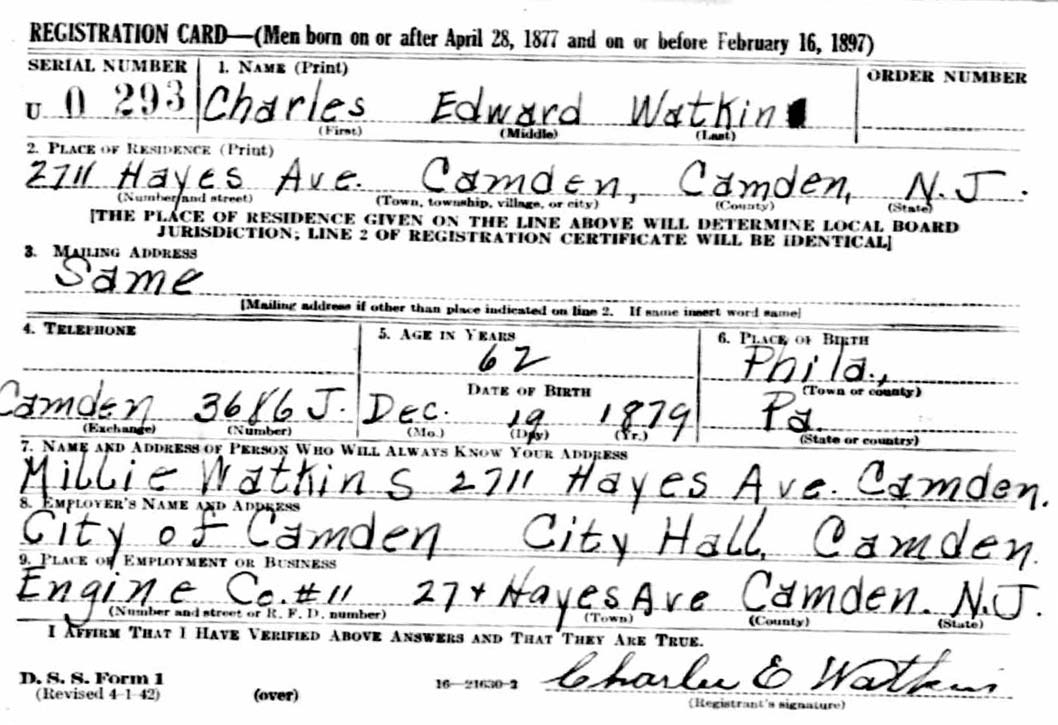 REGISTRATION CARD—(Men born on or after April 28, 1877 and on or before February 16, 1897)
SERIAL NUMBER 1. NAME (Print) ORDER NUMBER
U 0 293 Charles Edward Watkins
(First) (Middle) (Last)
2. PLACE OF RESIDENCE (Print)
2711 Hayes Ave. Camden, Camden, N.J.
(Number and street) (Town, township, village, or city) (County) (State)
[THE PLACE OF RESIDENCE GIVEN ON THE LINE ABOVE WILL DETERMINE LOCAL BOARD
JURISDICTION; LINE 2 OF REGISTRATION CERTIFICATE WILL BE IDENTICAL]
3. MAILING ADDRESS
Same
[Mailing address if other than place indicated on line 2. If same insert word same]
4. TELEPHONE 5. AGE IN YEARS 6. PLACE OF BIRTH
62 Phila.,
DATE OF BIRTH (Town or county)
Camden 3686 J. Dec. 19 1879 Pa
(Exchange) (Number) (Mo.) (Day) (Yr.) (State or country)
7. NAME AND ADDRESS OF PERSON WHO WILL ALWAYS KNOW YOUR ADDRESS
Millie Watkins 2711 Hayes Ave. Camden.
8. EMPLOYER'S NAME AND ADDRESS
City of Camden City Hall, Camden.
9. PLACE OF EMPLOYMENT OR BUSINESS
Engine Co. #11 27+ Hayes Ave Camden. N.J.
(Number and street or R. F. D. number) (Town) (County) (State)
I AFFIRM THAT I HAVE VERIFIED ABOVE ANSWERS AND THAT THEY ARE TRUE.
D. S. S. Form 1
(Revised 4-1-42) (over) 16—21630-2 Charles E Watkins
(Registrant's signature)